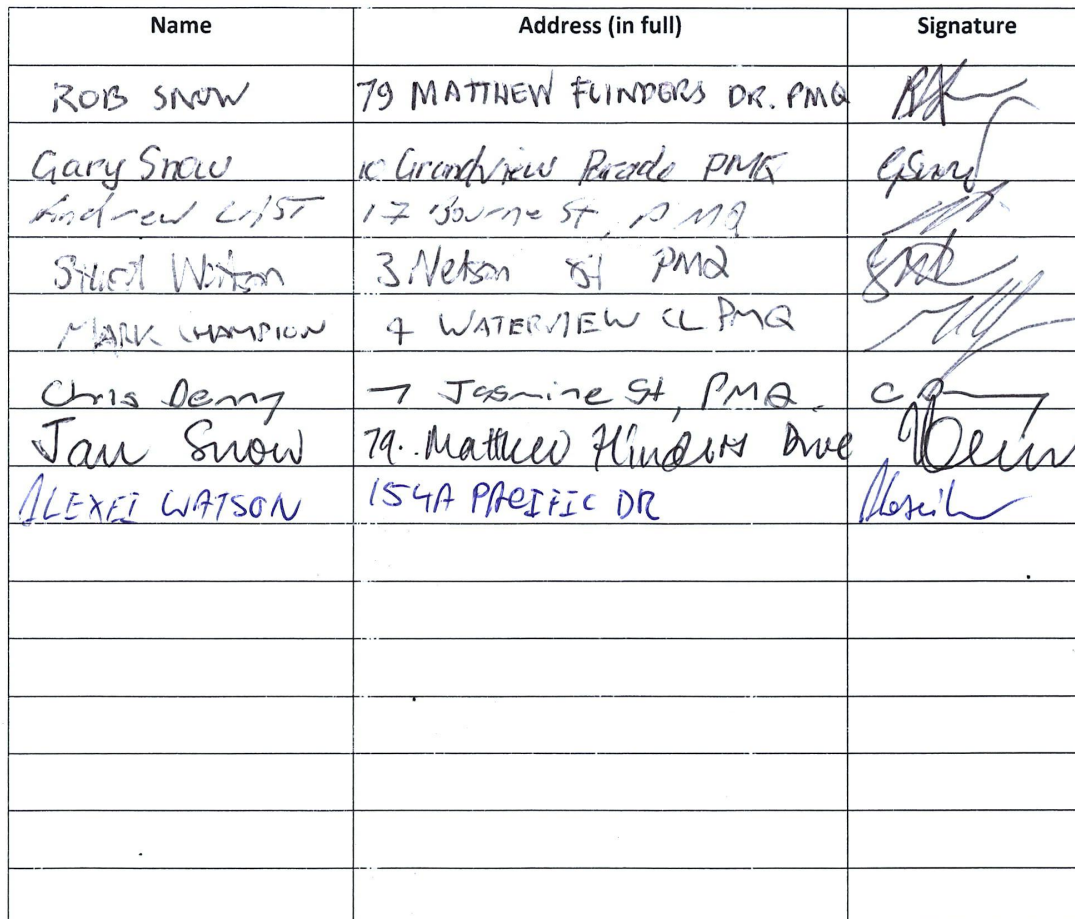 Name Address (in full) Signature
ROB SNOW 79 MATTHEW FLINDERS DR. PMQ
Gary Snow 10 Grandview Parade PMQ
Andrew LIST 17 Bourne St, PMQ
Watson 3 Nelson St PMQ
MARK CHAMPION 4 WATERVIEW CL PMQ
Chris Denny 7 Jasmine St, PMQ.
Jan Snow 79. Matthew Flinders Drive
ALEXEI WATSON 154A PACIFIC DR